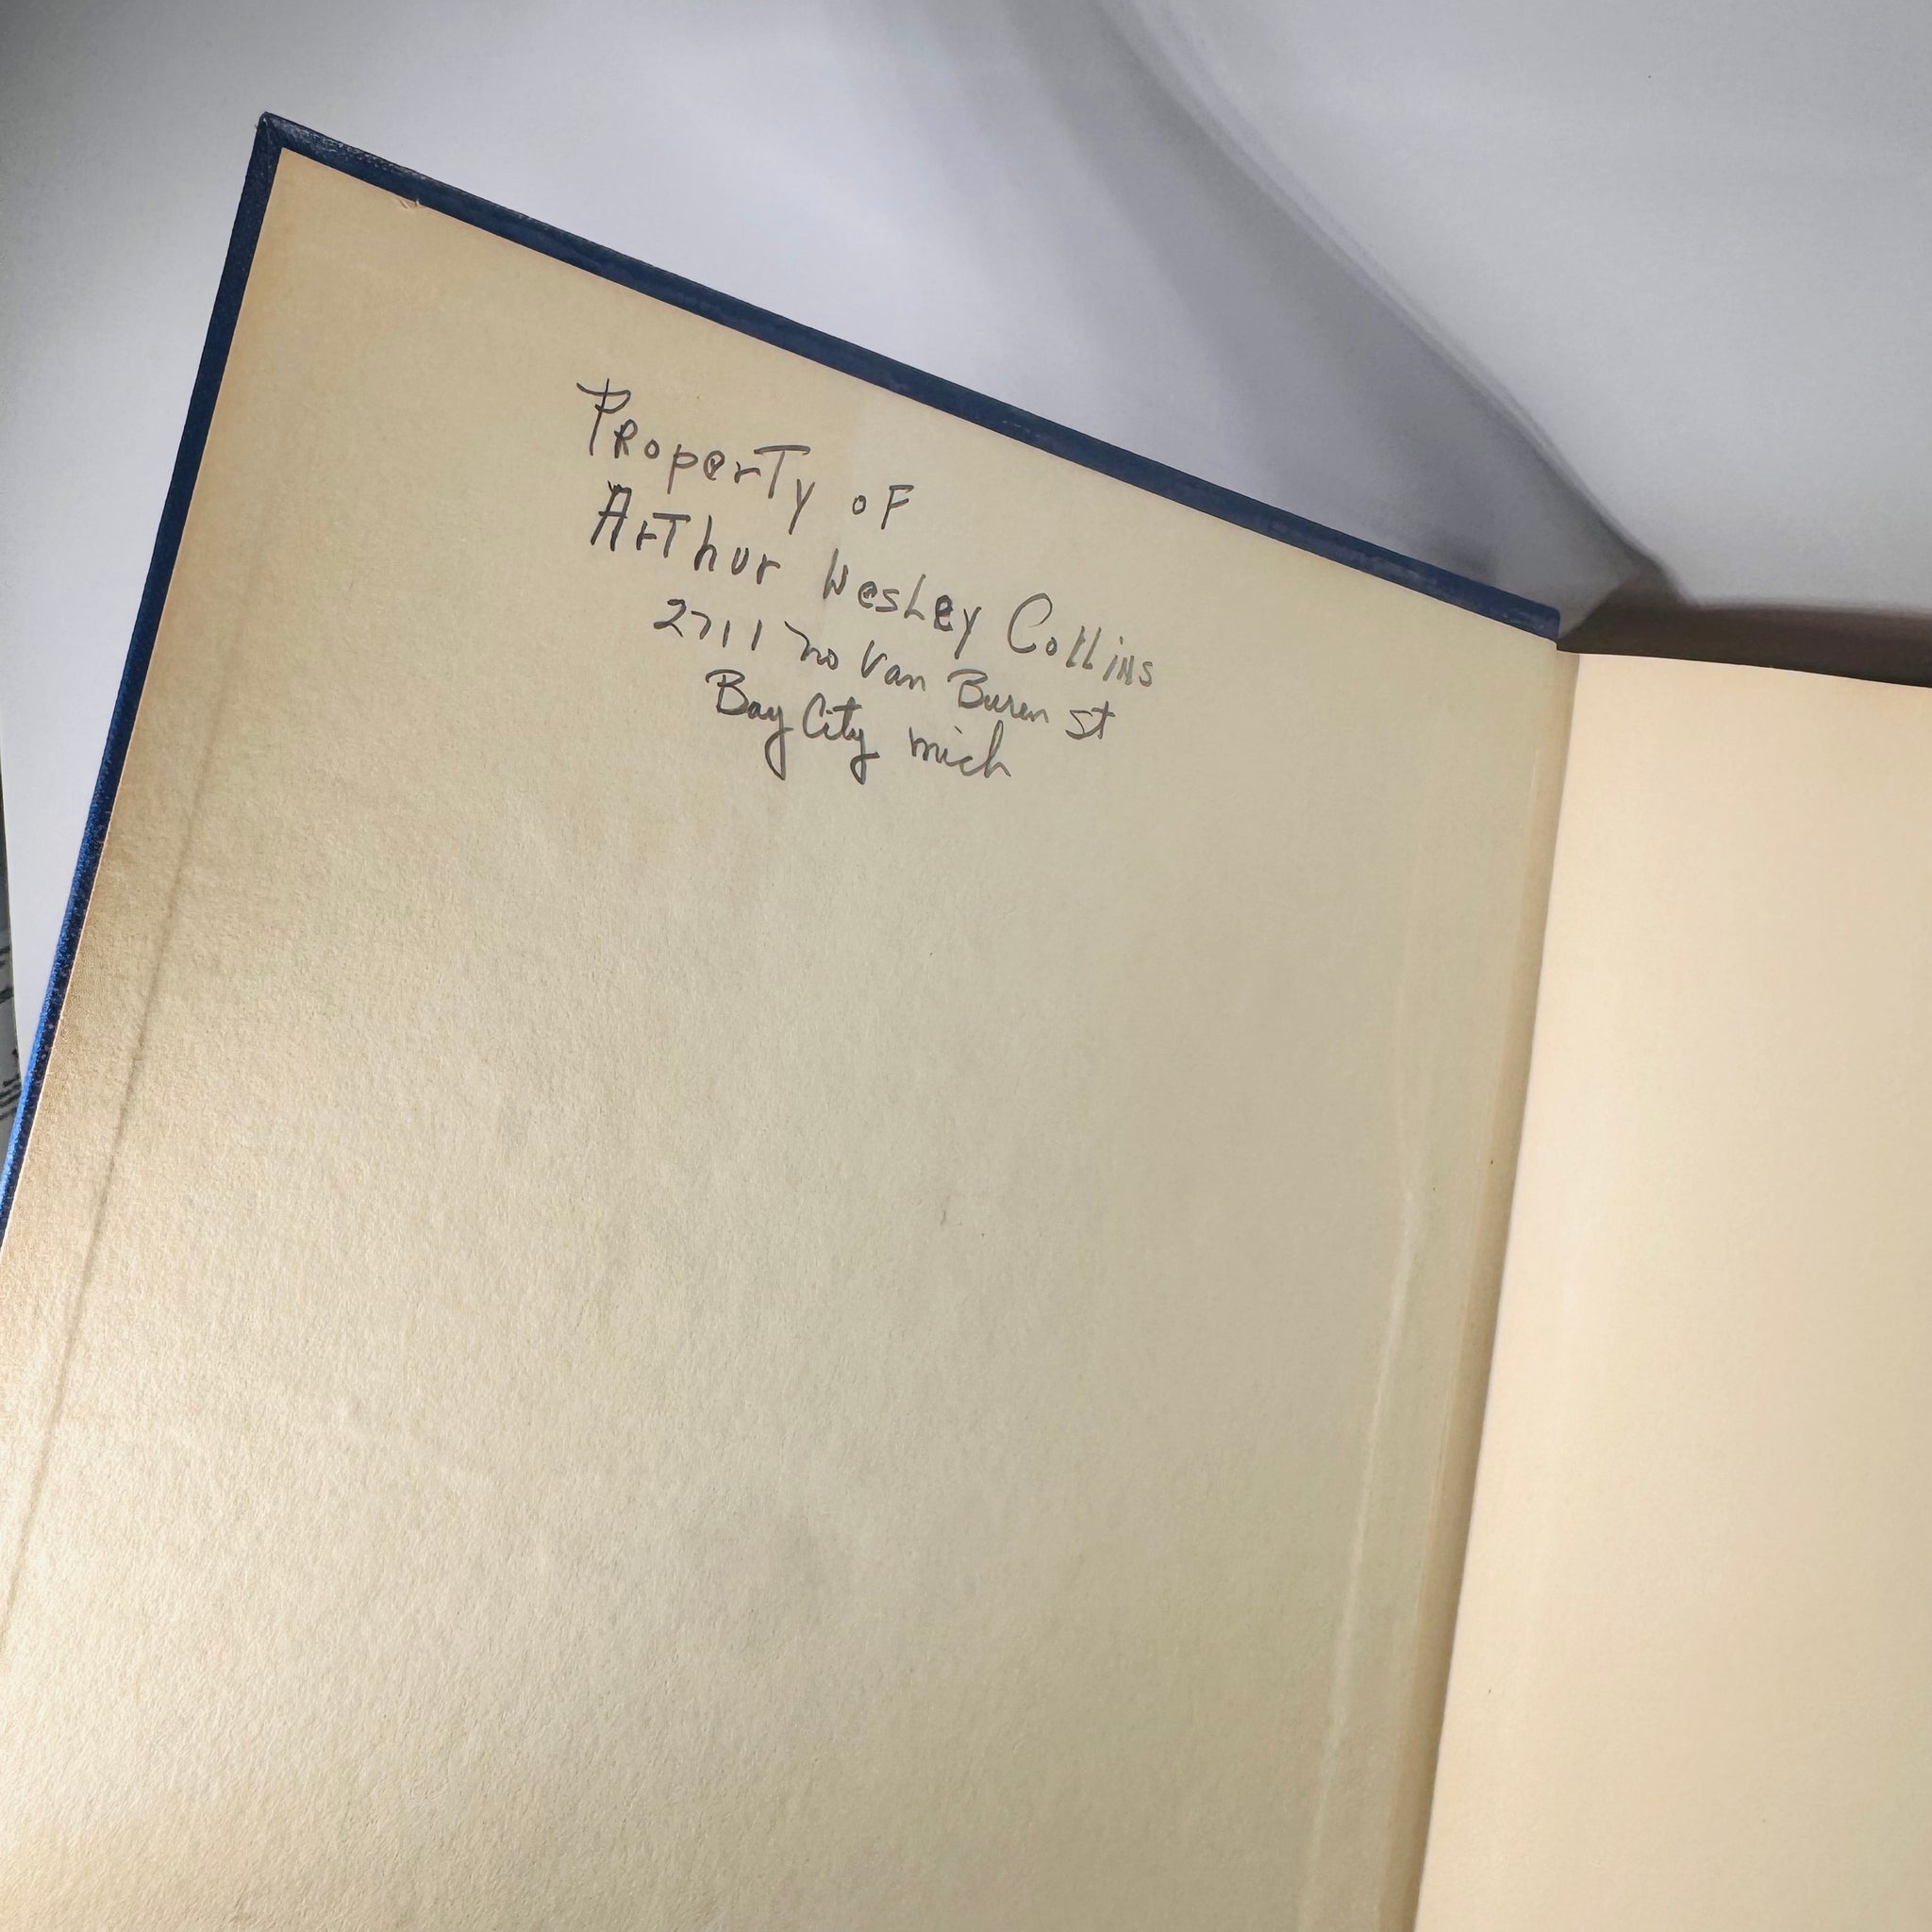 Property of
Arthur Wesley Collins
2711 no Van Buren st
Bay City mich